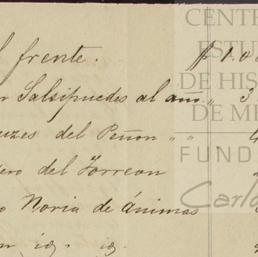 l frente. $ 1.0
r Salsipuedes al año " 3
uzes del Peñon " "
ero del Torreon
o Noria de ánimas
CENTR
ESTU
DE HIS
DE ME
FUND
Carlo